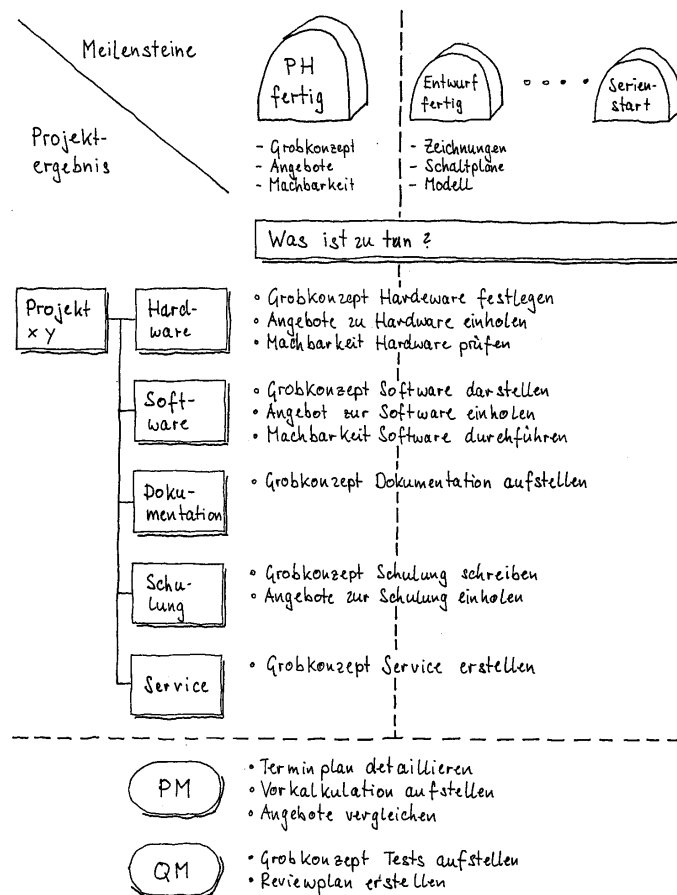 Meilensteine
Projekt-
ergebnis
PH
fertig
Entwurf
fertig
Serien-
start
- Grobkonzept
- Angebote
- Machbarkeit
- Zeichnungen
- Schaltpläne
- Modell
Was ist zu tun?
Projekt
x y
Hard-
ware
• Grobkonzept Hardeware festlegen
• Angebote zu Hardware einholen
• Machbarkeit Hardware prüfen
Soft-
ware
• Grobkonzept Software darstellen
• Angebot zur Software einholen
• Machbarkeit Software durchführen
Doku-
mentation
• Grobkonzept Dokumentation aufstellen
Schu-
lung
• Grobkonzept Schulung schreiben
• Angebote zur Schulung einholen
Service
• Grobkonzept Service erstellen
PM
• Terminplan detaillieren
• Vorkalkulation aufstellen
• Angebote vergleichen
QM
• Grobkonzept Tests aufstellen
• Reviewplan erstellen